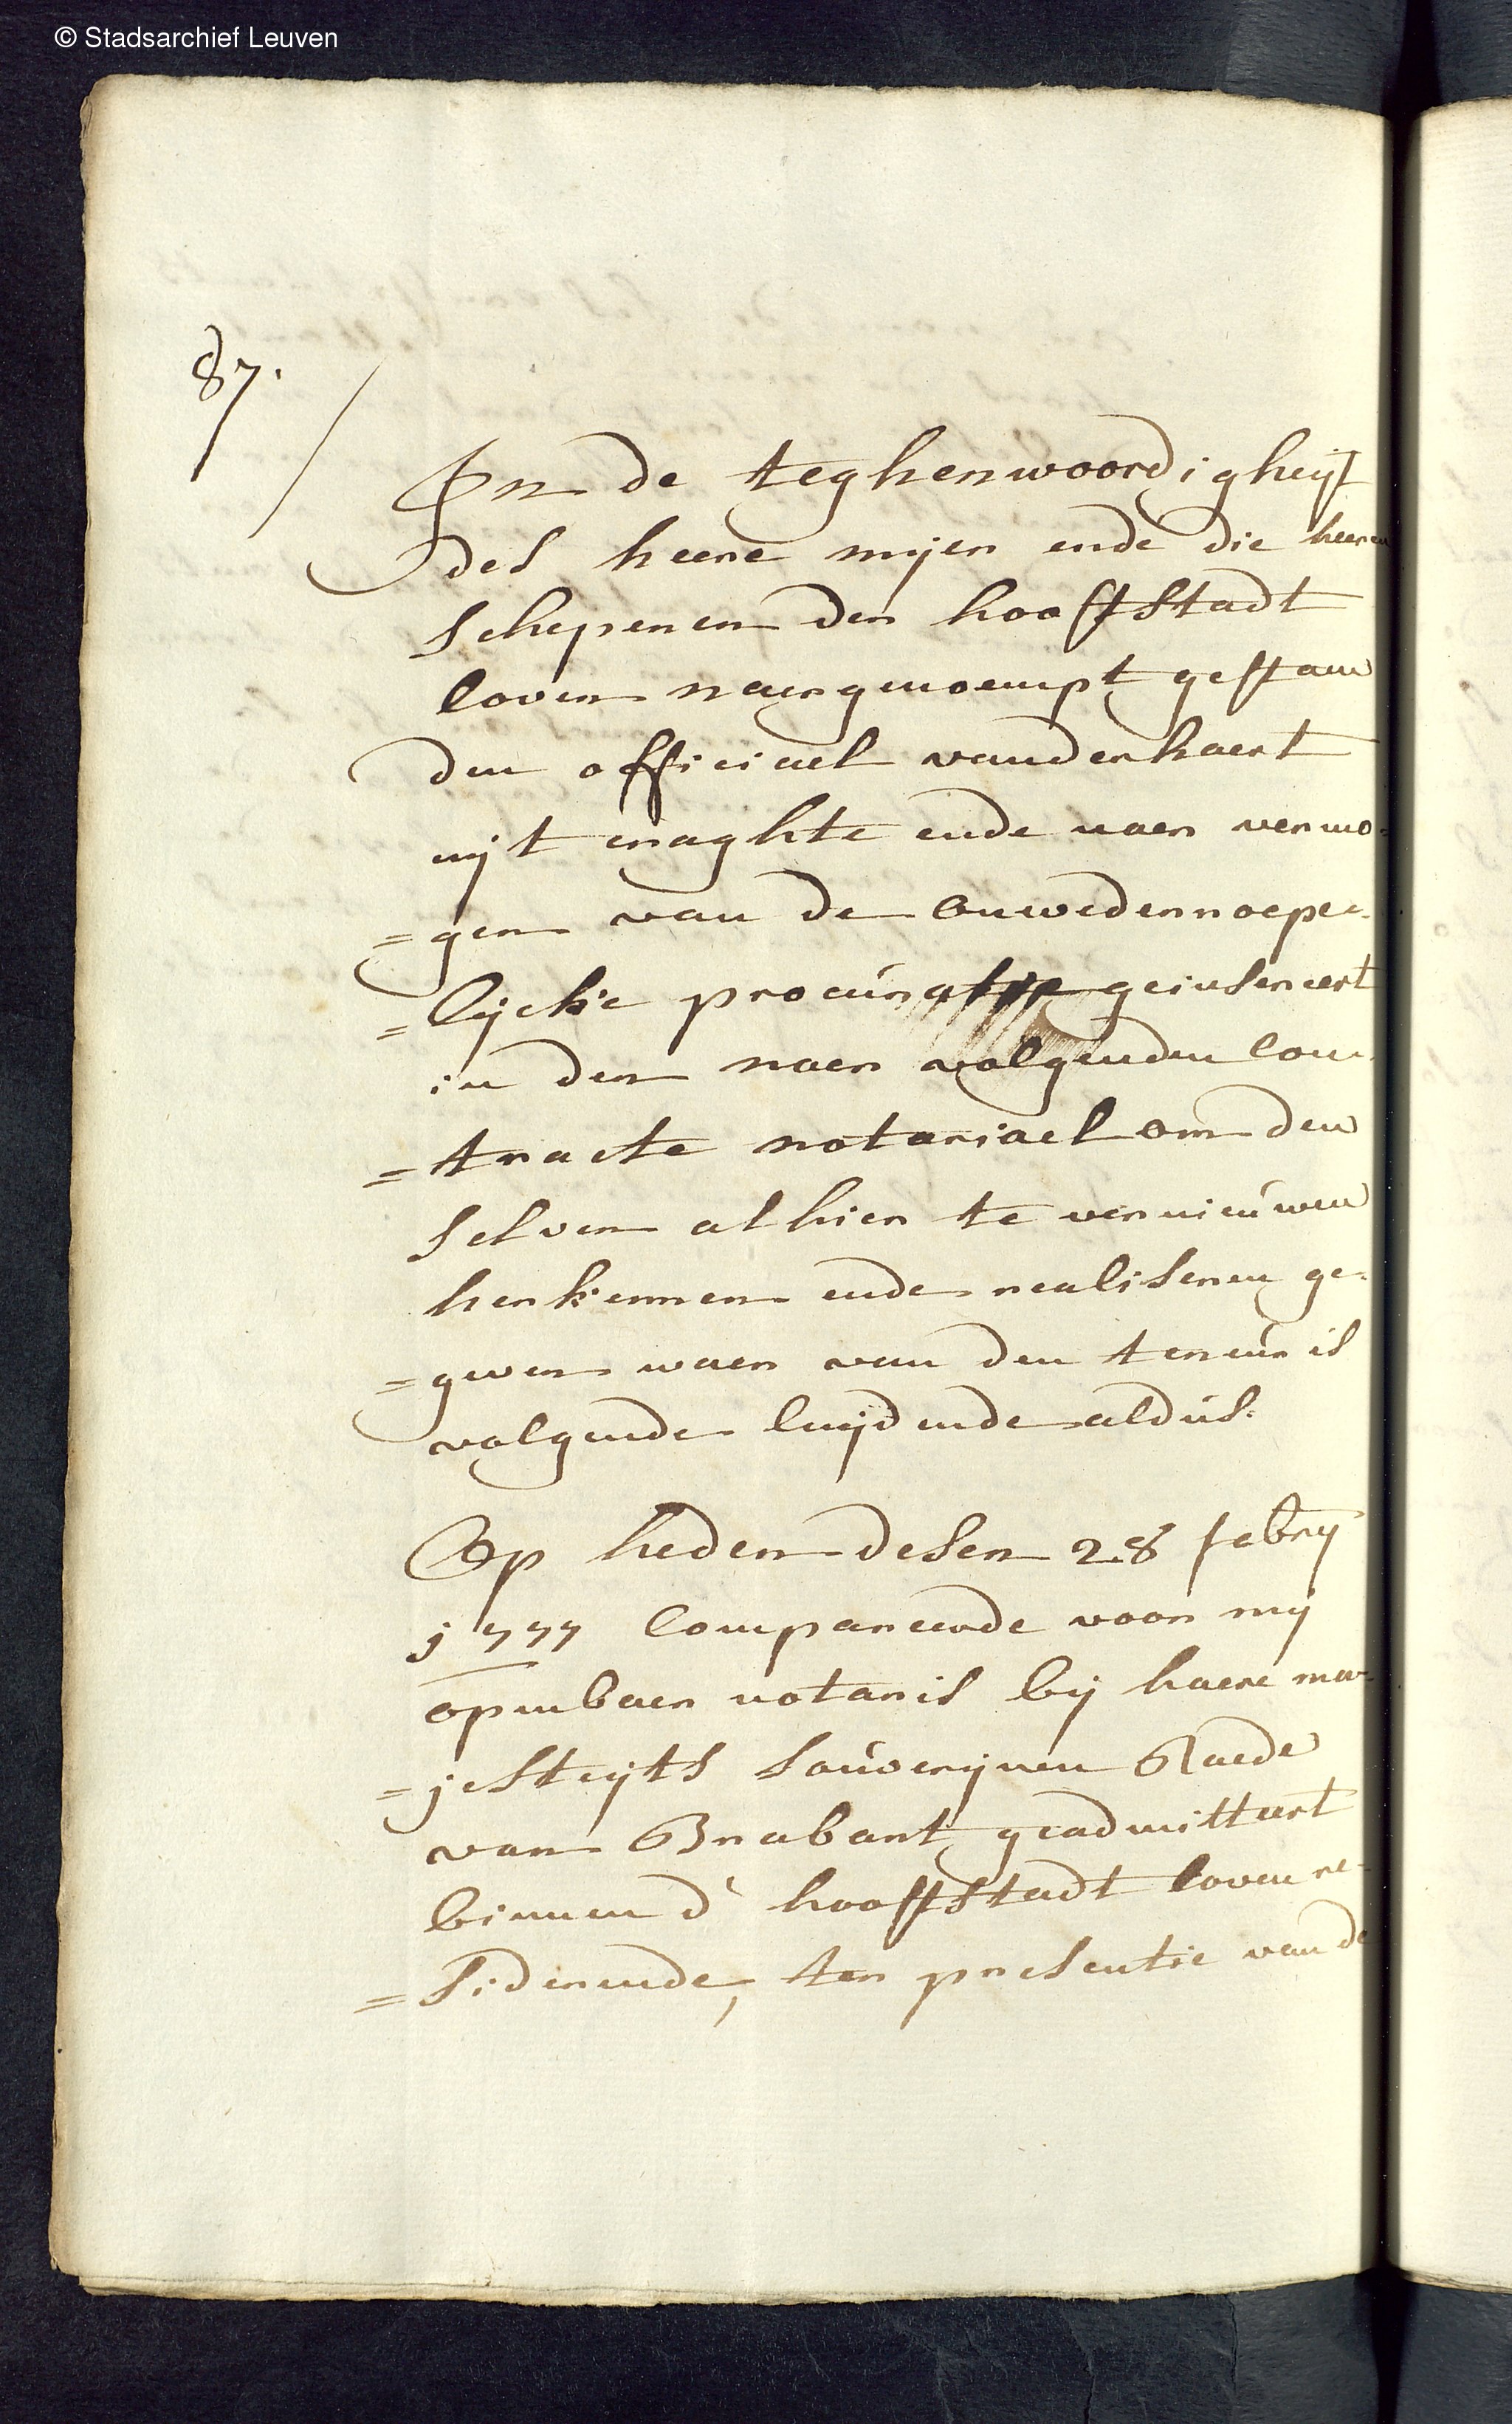 © Stadsarchief Leuven
87.
In de teghenwoordigheijt
des heere mijer ende die heeren
schepenen der hooftstadt
loven naergenoempt gestaen
den officiael vanderhaert
uijt craghte ende naer vermo=
=gen van de onwederroepe=
=lijcke procuratie geinsereert
in den naer volgenden con=
=tracte notariael om den
selven alhier te vernieuwen
herkennen ende realiseren ge=
=geven waer van den teneur is
volgende luijdende aldus.
Op heden desen 28 febrij
j777 Compareerde voor mij
openbaer notaris bij haere ma=
=jesteijts souverijnen Raede
van Brabant geadmitteert
binnen d' hooftstadt loven re=
=siderende, ter presentie van de